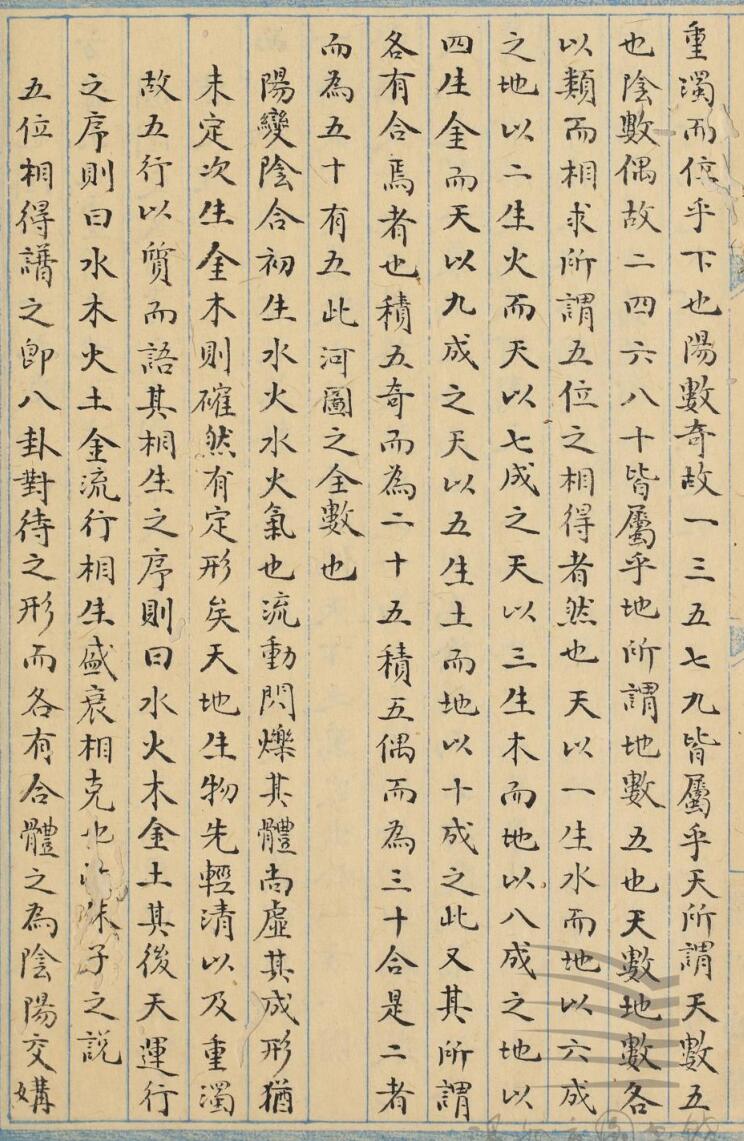 重濁而位乎下也陽數奇故一三五七九皆屬乎天所謂天數五
也陰數偶故二四六八十皆屬乎地所謂地數五也天數地數各
以類而相求所謂五位之相得者然也天以一生水而地以六成
之地以二生火而天以七成之天以三生木而地以八成之地以
四生金而天以九成之天以五生土而地以十成之此又其所謂
各有合焉者也積五奇而為二十五積五偶而為三十合是二者
而為五十有五此河圖之全數也
陽變陰合初生水火水火氣也流動閃爍其體尚虛其成形猶
未定次生金木則確然有定形矣天地生物先輕清以及重濁
故五行以質而語其相生之序則曰水火木金土其後天運行
之序則曰水木火土金流行相生盛衰相克也朱子之說
五位相得譜之即八卦對待之形而各有合體之為陰陽交媾